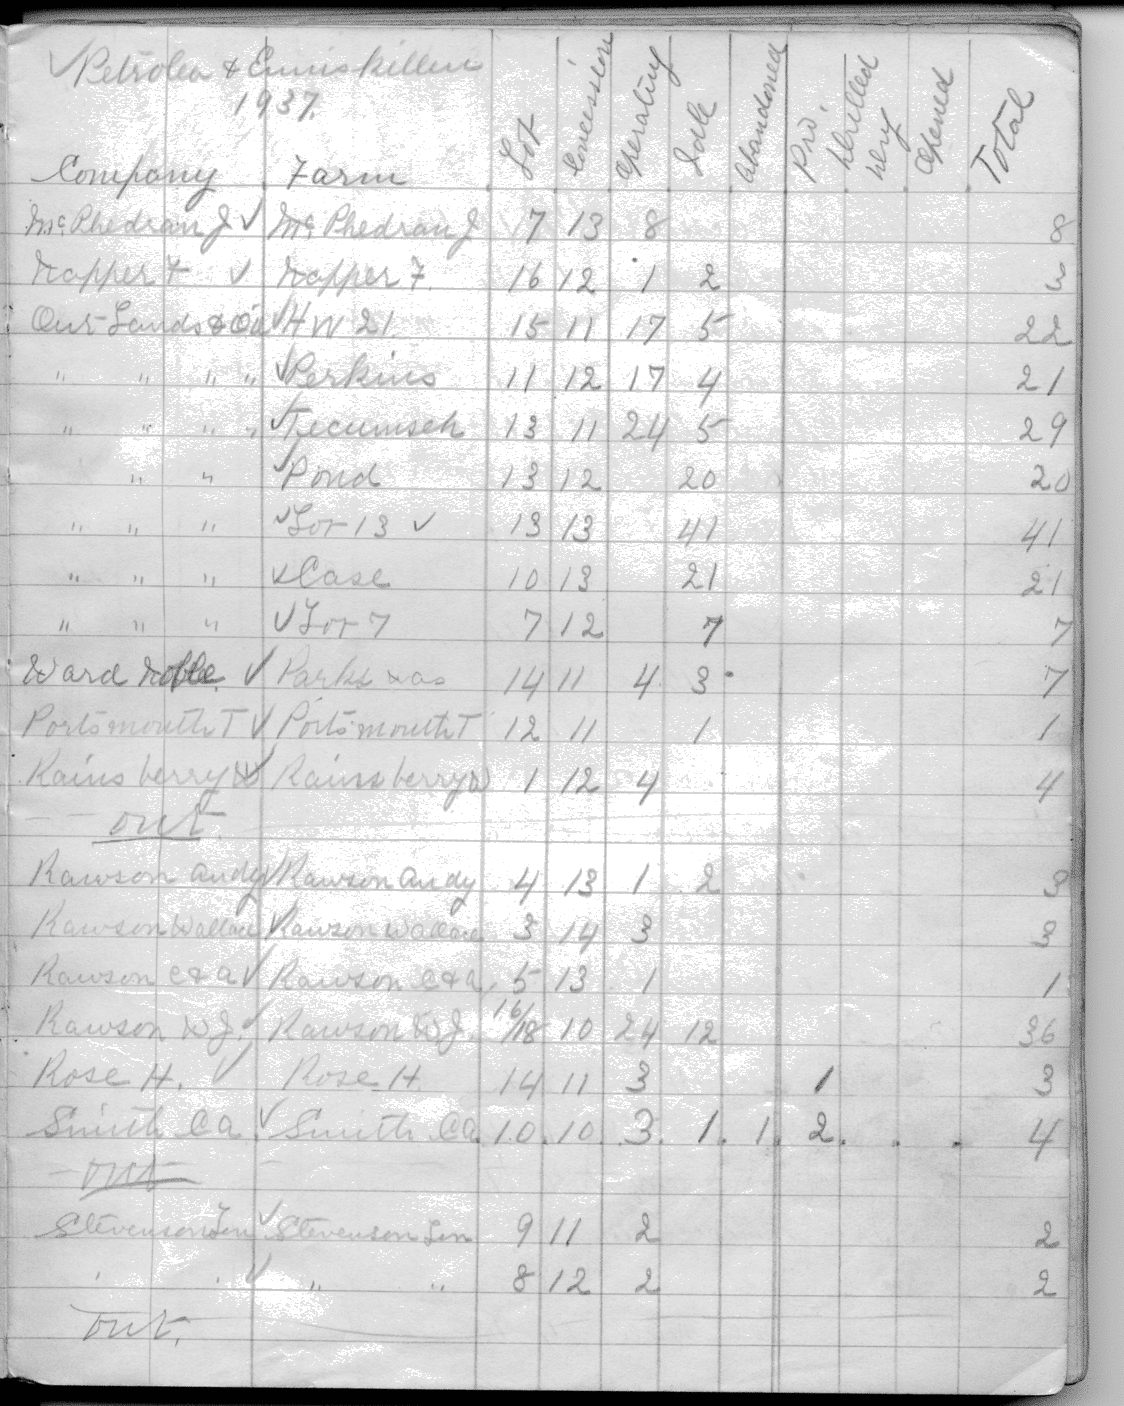 ✓ Petrolea & Enniskillen
1937.
Company Farm Lot Concession Operating Idle Abandoned Pro. Drilled New Opened Total
McPhedran J ✓ McPhedran J 7 13 8 8
Napper F ✓ Napper F. 16 12 1 2 3
Ont Lands & Oil ✓ H W 21. 15 11 17 5 22
" " " " ✓ Perkins 11 12 17 4 21
" " " " ✓ Tecumseh 13 11 24 5 29
" " ✓ Pond 13 12 20 20
" " " ✓ Lot 13 ✓ 13 13 41 41
" " " ✓ Case 10 13 21 21
" " " ✓ Lot 7 7 12 7 7
Ward Noble. ✓ Parks 14 11 4 3 7
Portsmouth T ✓ Portsmouth T 12 11 1 1
Rainsberry W ✓ Rainsberry W 1 12 4 4
out.
Rawson Andy ✓ Rawson Andy 4 13 1 2 3
Rawson Wallace ✓ Rawson Wallace 3 14 3 3
Rawson C & A ✓ Rawson C & A. 5 13 1 1
Rawson W J. ✓ Rawson W J. 16/18 10 24 12 36
Rose H. ✓ Rose H. 14 11 3 1 3
Smith C A ✓ Smith C A 10. 10. 3. 1. 1. 2. . . 4
out
Stevenson Len ✓ Stevenson Len 9 11 2 2
" " ✓ " " 8 12 2 2
out.